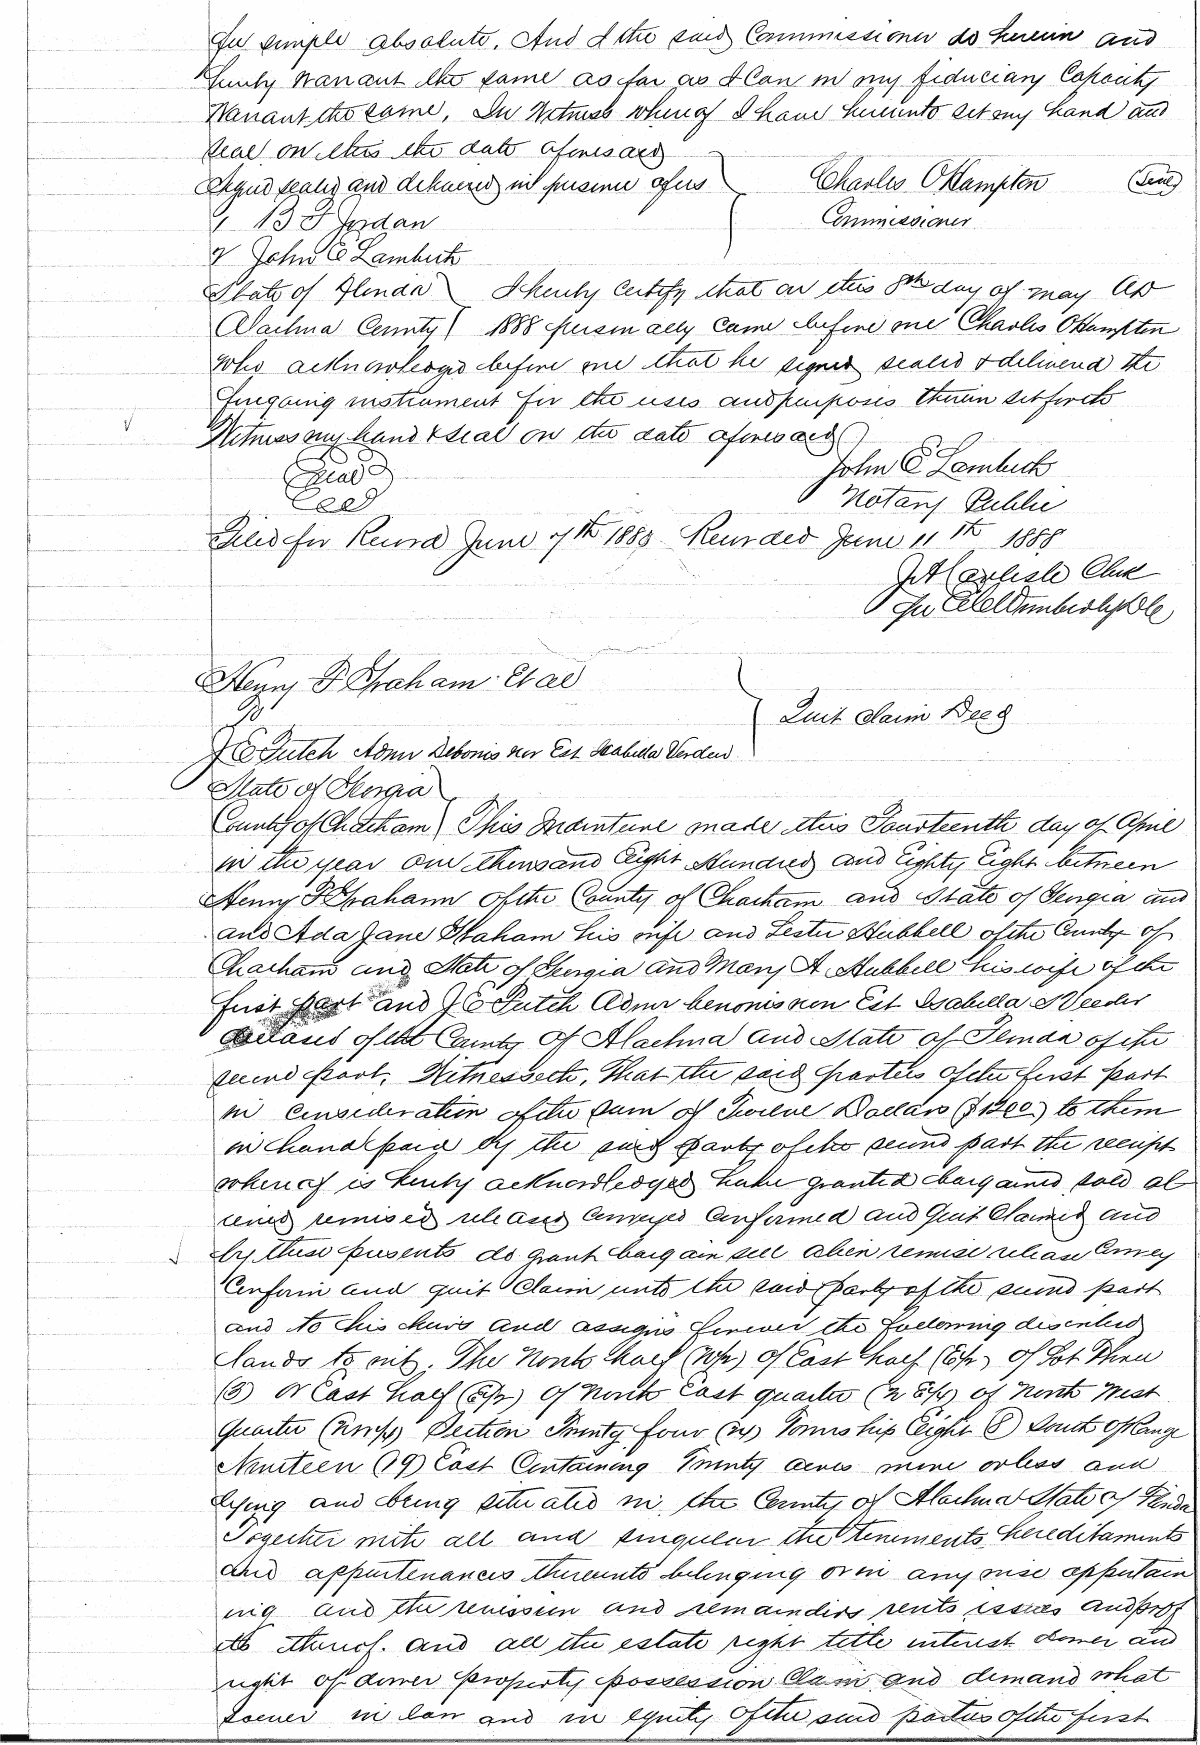 Fee simple absolute. And I the said Commissioner do herein and
hereby warrant the same as far as I can in my fiduciary Capacity
Warrant the same. In Witness whereof I have hereunto set my hand and
seal on this the date aforesaid
Signed sealed and delivered in presence of us } Charles O Hampton (Seal)
1 B F Jordan Commissioner
2 John E Lambeth
State of Florida } I hereby Certify that on this 8th day of may AD
Alachua County } 1888 personally came before me Charles O Hampton
who acknowledged before me that he signed sealed & delivered the
foregoing instrument for the uses and purposes therein set forth
Witness my hand & seal on the date aforesaid
(Seal) John E Lambeth
Notary Public
Filed for Record June 7th 1888 Recorded June 11th 1888
J A Carlisle Clerk
Per
Henry F Graham Et al
To } Quit Claim Deed
J E Futch Admr Debonis non Est Isabella
State of Georgia }
County of Chatham } This Indenture made this Fourteenth day of April
in the year one thousand Eight Hundred and Eighty Eight between
Henry F Graham of the County of Chatham and State of Georgia and
and Ada Jane Graham his wife and Lester Hubbell of the County of
Chatham and State of Georgia and Mary A Hubbell his wife of the
first part and J E Futch Admr benonis non Est Isabella
deceased of the County of Alachua and State of Florida of the
second part, Witnesseth, That the said parties of the first part
in consideration of the sum of Twelve Dollars ($12.00) to them
in hand paid by the said party of the second part the receipt
whereof is hereby acknowledged have granted bargained sold al
iened remised released Conveyed Confirmed and Quit Claimed and
by these presents do grant bargain sell alien remise release Convey
Confirm and quit Claim unto the said party of the second part
and to his heirs and assigns forever the following described
lands to wit. The North half (N½) of East half (E½) of Lot Three
(3) or East half (E½) of North East quarter (N E¼) of North West
Quarter (NW¼) Section Twenty four (24) Township Eight (8) South of Range
Nineteen (19) East Containing Twenty acres more or less and
lying and being situated in the County of Alachua State of Florida
Together with all and singular the tenements hereditaments
and appurtenances thereunto belonging or in any wise appertain
ing and the revission and remainders rents issues and prof
its thereof. and all the estate right title interest dower and
right of dower property possession Claim and demand what
soever in law and in equity of the said parties of the first